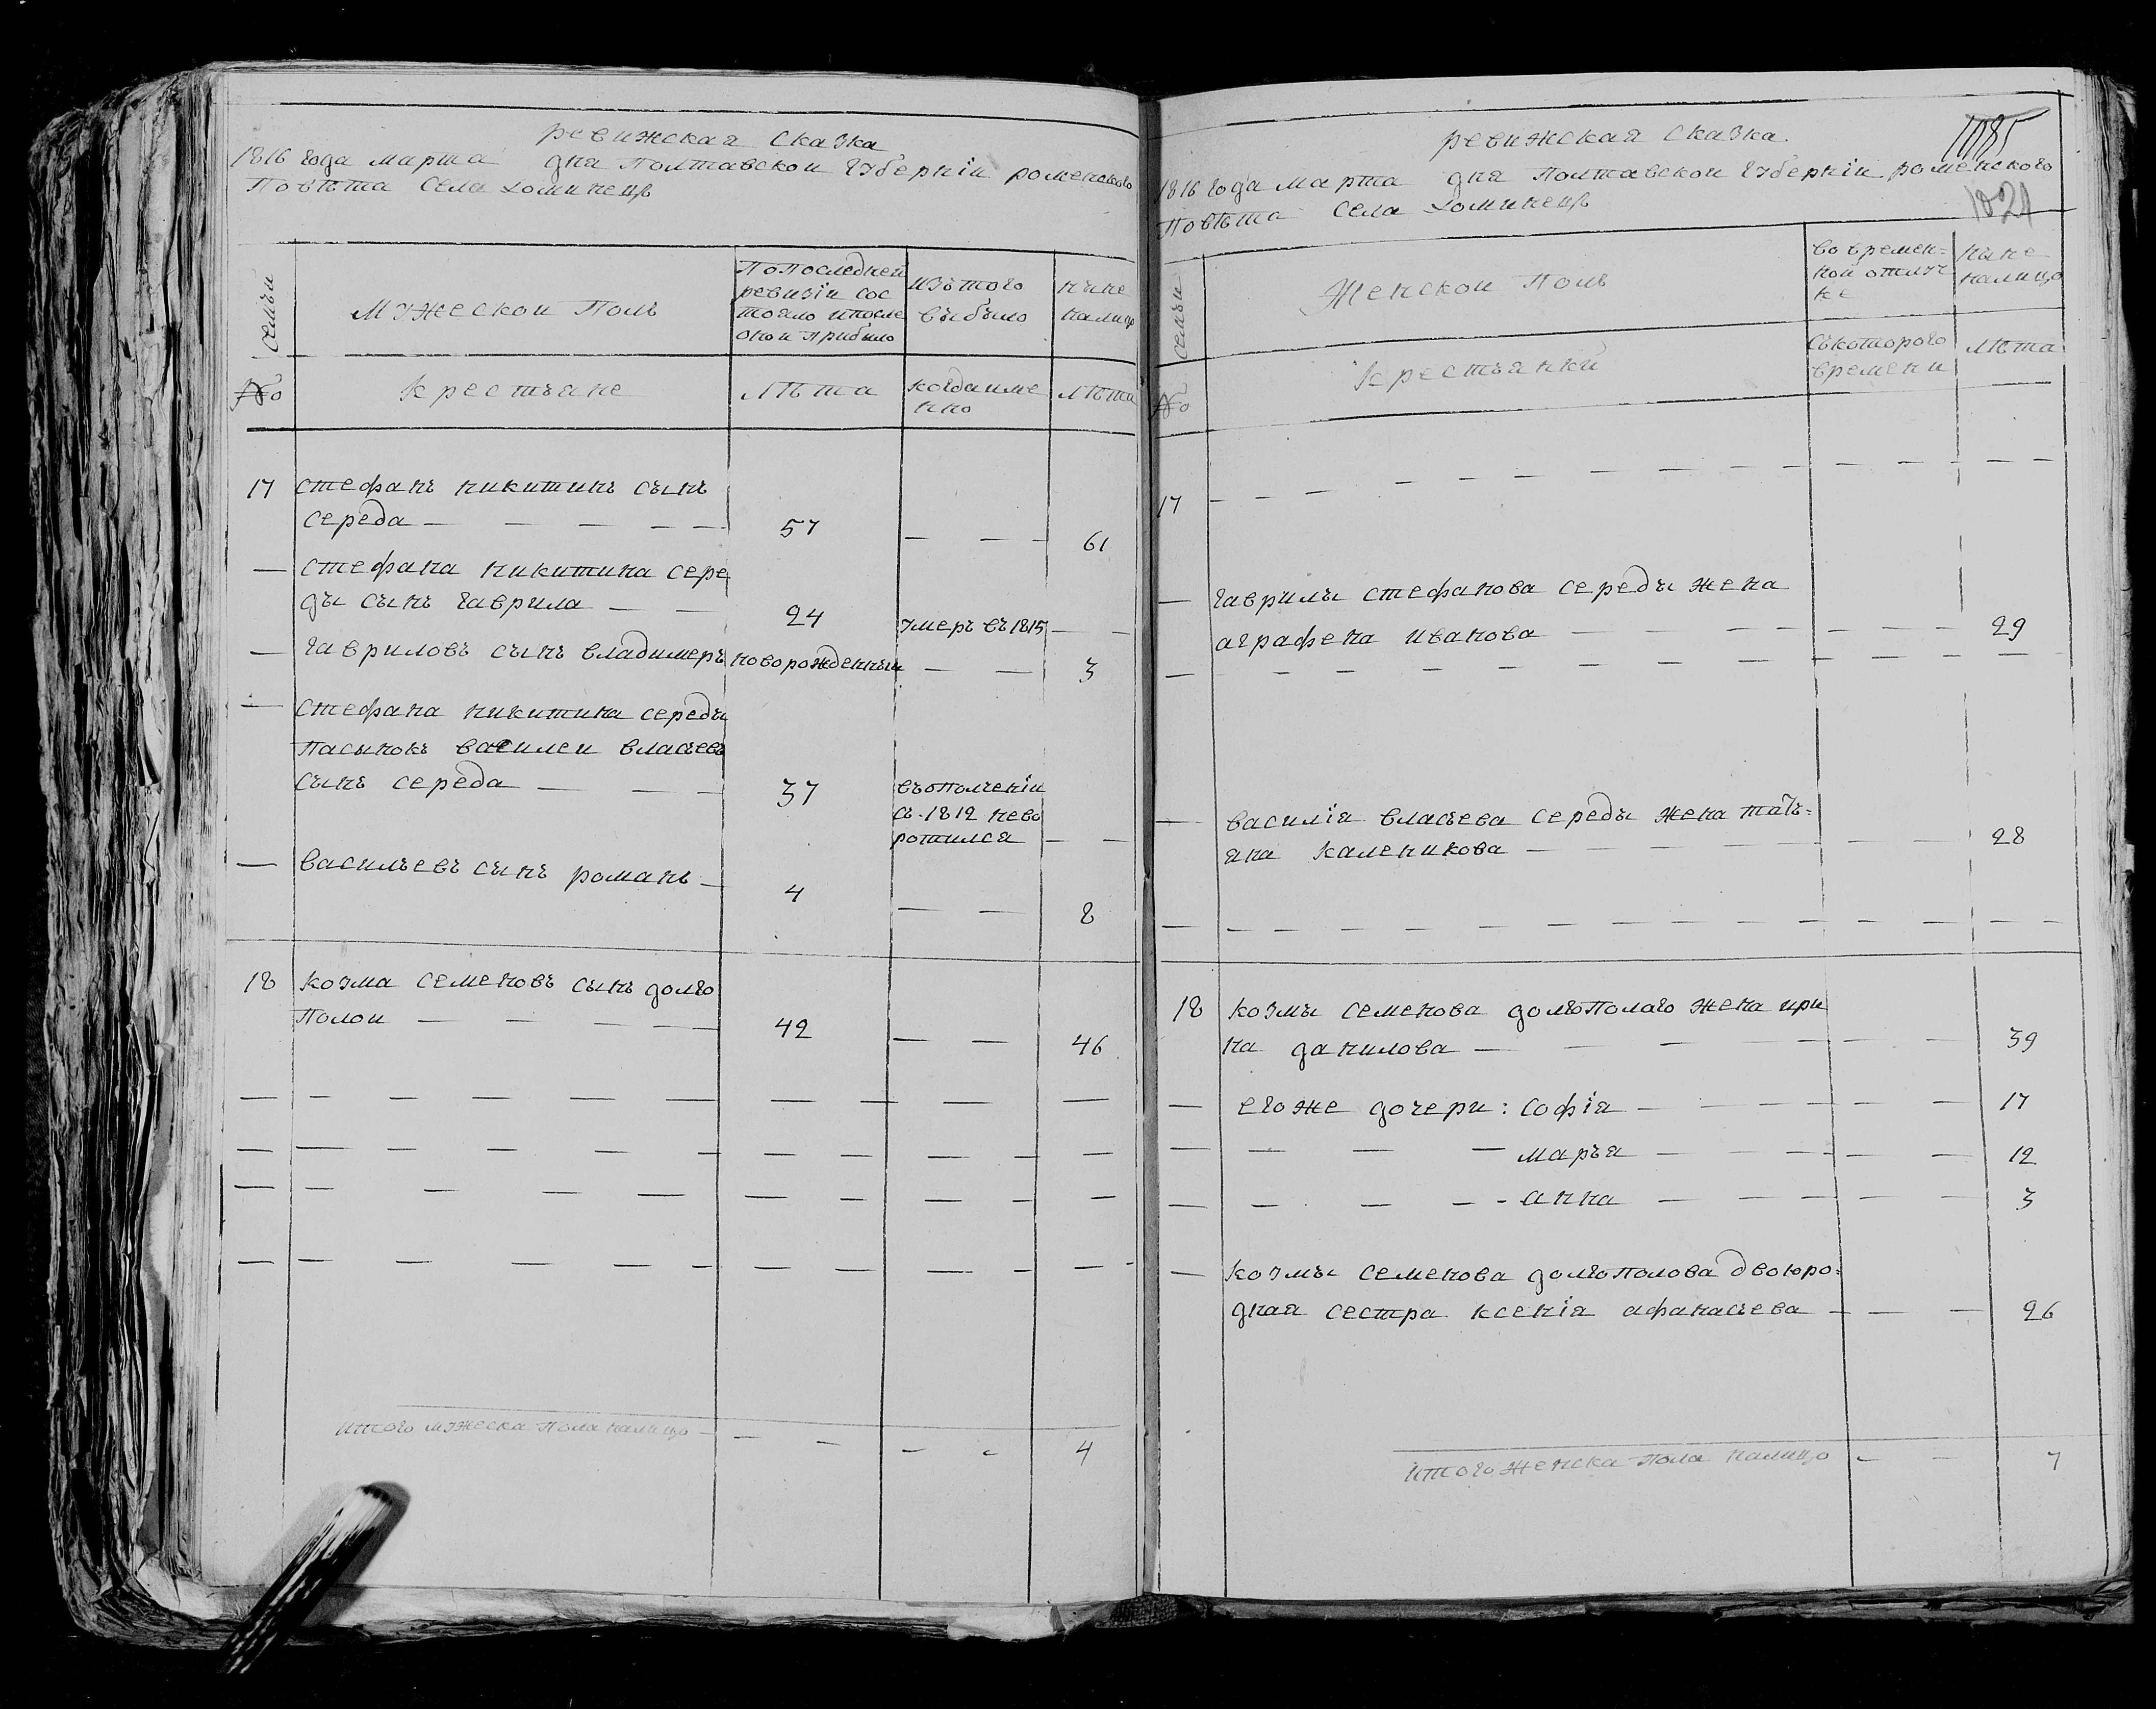 ревижская сказка
1816 года марта дня Полтавской губерніи роменского
Повѣта села хоминецъ
семьи
Мужескои Полъ
По Последнеи
ревизіи сос
тояло ипосле
онои прибыло
изътого
выбыло
ныне
налицо
№
крестьяне
Лѣта
когдаиме
нно
Лѣта
17 стефанъ никитинъ сынъ
середа — — — — 57 — — 61
— стефана никитина сере
ды сынъ гаврила — — 24 умеръ въ 1815 — —
— гавриловъ сынъ владимеръ новорожденныи — — 3
— стефана никитина середы
пасынокъ василеи власьевъ
сынъ середа — — — 37 въополченіи
съ. 1812 нево
ротился — —
— васильевъ сынъ романъ — 4 — — 8
18 козма семеновъ сынъ долго
полои — — — — 42 — — 46
итого мужеска пола налицо — — — — — 4
ревижская сказка
1085
1816 года марта дня Полтавской губерніи роменского
1021
Повѣта села хоминецъ
семьи
Женскои Полъ
во времен=
ной отлуч
ке
ныне
налицо
№
Крестьянки
съкоторого
времени
лѣта
17 — — — — — — — — — —
— гаврилы стефанова середы жена
аграфена иванова — — — — — 29
— — — — — — — — — —
— василія власьева середы жена тать=
яна каленикова — — — — — — 28
— — — — — — — — — —
18 козмы семенова долгополаго жена ири
на данилова — — — — — 39
— егоже дочери: софія — — — — — 17
— — — — марья — — — — — 12
— — — — - анна — — — — — 3
— козмы семенова долгополова двоюро=
дная сестра ксенія афанасьева — — — 26
итого женска пола налицо — — 7